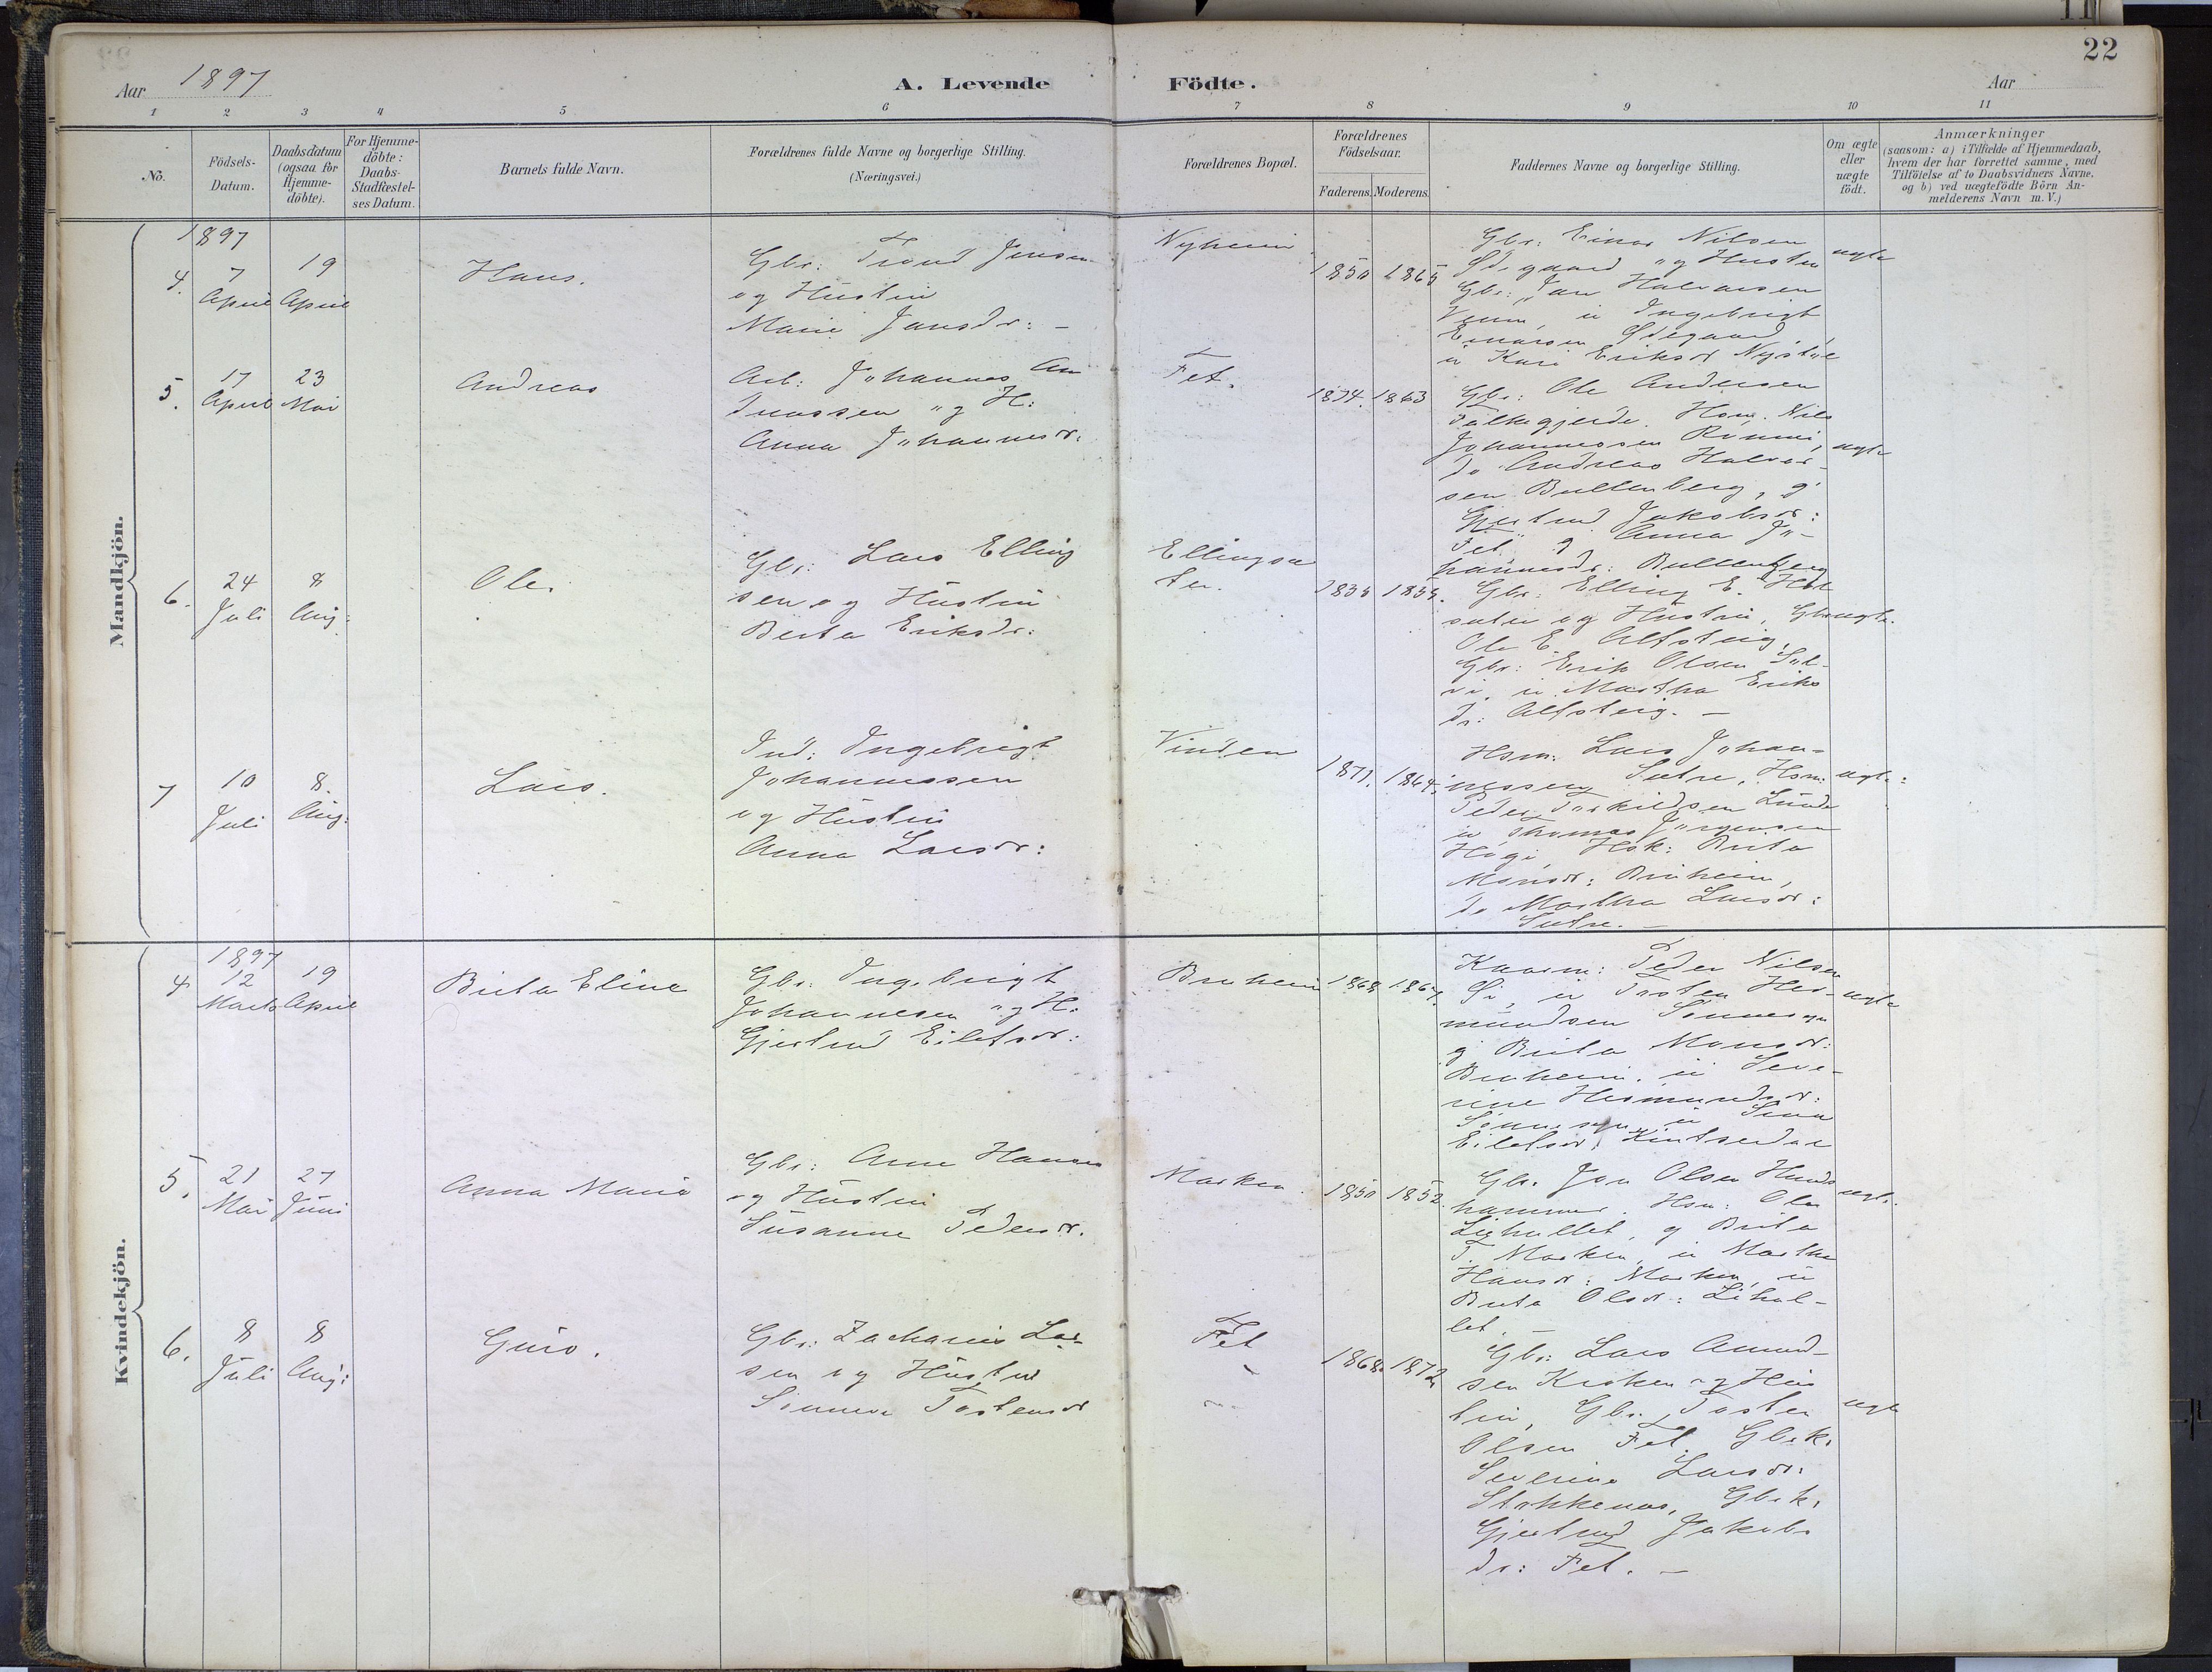 22
Aar 1897
A. Levende Födte.
Aar
1 2 3 4 5 6 7 8 9 10 11
No.
Födsels-
Datum.
Daabsdatum
(ogsaa for
Hjemme-
döbte).
For Hjemme-
döbte:
Daabs-
Stadfæstel-
ses Datum.
Barnets fulde Navn.
Forældrenes fulde Navne og borgerlige Stilling.
(Næringsvei.)
Forældrenes Bopæl.
Forældrenes
Födselsaar.
Faderens. Moderens.
Faddernes Navne og borgerlige Stilling.
Om ægte
eller
uægte
födt.
Anmærkninger
(saasom: a) i Tilfælde af Hjemmedaab,
hvem der har forrettet samme, med
Tilföielse af to Daabsvidners Navne,
og b) ved uægtefödte Börn An-
melderens Navn m. V.)
Mandkjön.
1897
4. 7 April
19 April
Hans.
Gbr: Trond Jensen
og Hustru
Marie Jansdr: -
Nyheim
1850 1865
Gbr: Einar Nilsen
Ødegaard og Hustru
Gbr: Jan Halvorsen
Venm, u Ingebrigt
Einarsen Ødegaard,
u Kari Eriksdr Nystøl
ægte
5. 17 April
23 Mai
Andreas
Arb: Johannes An
dreassen og H:
Anna Johannesdr:
Fet.
1874. 1863
Gbr: Ole Andersen
Falkegjerde. Hsm: Nils
Johannessen Rønnei,
do Andreas Halvor-
sen Bullenberg, g
Gjertrud Jakobsdr:
Fet g Anna Jo-
hannesdr: Bullenberg
ægte
6. 24 Juli
8 Aug:
Ole.
Gbr: Lars Elling
sen og Hustru
Berta Eriksdr:
Ellingsæ
ter.
1835 1855.
Gbr: Elling E. Hol
sæter og Hustru, Gbr
Ole E. Alfsteig,
Gbr: Erik Olsen Søl-
vi, u Martha Eriks
dr: Alfsteig. -
ægte.
7 10 Juli
8. Aug:
Lars.
Ind: Ingebrigt
Johannessen
og Hustru
Anna Larsdr:
Vinden
1871. 1864.
Hsm: Lars Johan-
nessen Sætre, Hsm:
Peder Torkildsen Lunde
u Thomas Jørgensen
Høgi, Hsk: Brita
Monsdr: Bruheim,
do Martha Larsdr:
Sætre. -
ægte:
Kvindekjön.
1897
4 12 Marts
19 April
Brita Eline
Gbr: Ingebrigt
Johannesen og H:
Gjertrud Eilefsdr:
Bruheim
1868 1867.
Kaarm: Peder Nilsen
u Tosten Her-
mundsen Sønnesyn
g Brita Monsdr:
Bruheim, u Seve-
rine Hermundsdr:
Sønnesyn u
Eilefsdr: Kintsedal
ægte
5. 21 Mai
27 Juni
Anna Maria
Gbr: Arne Hansen
og Hustru
Susanne Pedersdr.
Marken.
1850 1852.
Gbr. Jon Olsen Hunds
hammer. Hsm: Ole
Lihullet, g Brita
T. Marken, u Martha
Hansdr: Marken, u
Brita Olsdr: Lihol-
let. -
ægte.
6. 8 Juli
8 Aug:
Guro.
Gbr: Zacharias Lar-
sen og Hustru
Sønneva Tostensdr
Fet
1868. 1872
Gbr: Lars Amund-
sen Kroken og Hus
tru, Gbr: Tosten
Olsen Fet. Gbrk:
Severine Larsdr:
Stokkenæs, Gbrk:
Gjertrud Jakobs
dr: Fet. -
ægte